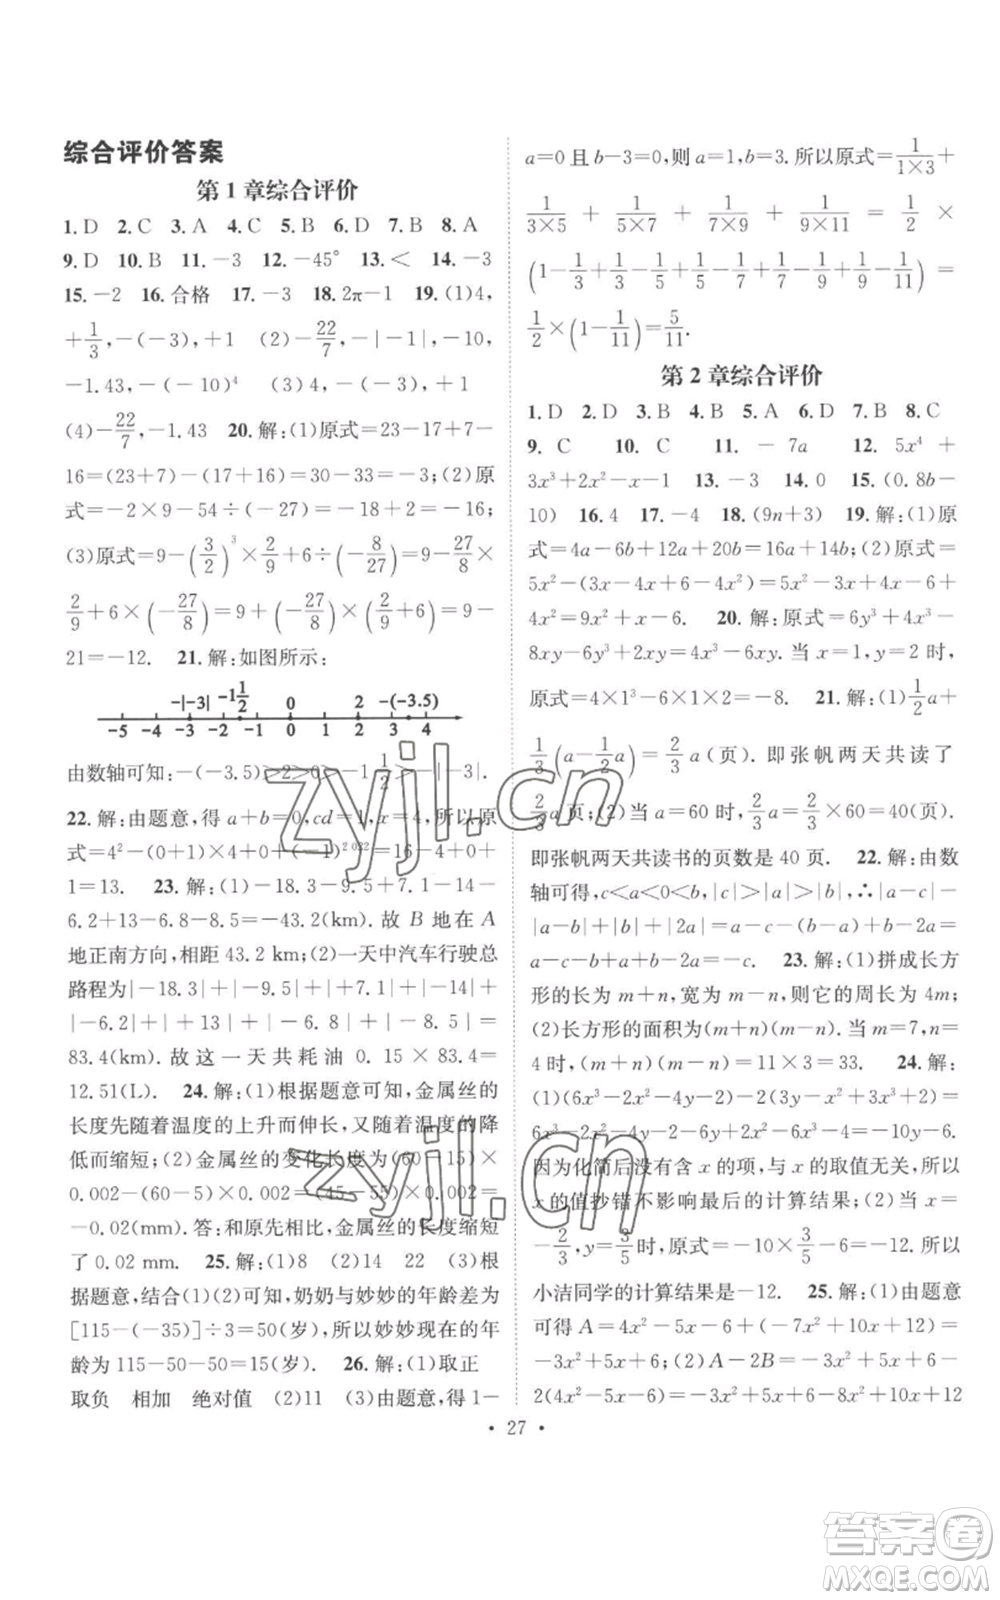 综合评价答案
第 1 章综合评价
1. D 2. C 3. A 4. C 5. B 6. D 7. B 8. A
9. D 10. B 11. -3 12. -45° 13. < 14. -3
15. -2 16. 合格 17. -3 18. 2π-1 19. (1)4,
+1/3, -(-3), +1 (2)-22/7, -|-1|,
-1.43, -(-10)⁴ (3)4, -(-3), +1
(4)-22/7, -1.43 20. 解:(1)原式=23-17+7-
16=(23+7)-(17+16)=30-33=-3;(2)原
式=-2×9-54÷(-27)=-18+2=-16;
(3)原式=9-(3/2)³×2/9+6÷(-8/27)=9-27/8×
2/9+6×(-27/8)=9+(-27/8)×(2/9+6)=9-
21=-12. 21. 解:如图所示:
-|-3| -1 1/2 0 2 -(-3.5)
-5 -4 -3 -2 -1 0 1 2 3 4
由数轴可知:-(-3.5)>2>0>-1 1/2>-|-3|.
22. 解:由题意,得 a+b=0,cd=1,x=4,所以原
式=4²-(0+1)×4+0+(-1)²⁰²²=16-4+0+
1=13. 23. 解:(1)-18.3-9.5+7.1-14-
6.2+13-6.8-8.5=-43.2(km). 故 B 地在 A
地正南方向,相距 43.2 km;(2)一天中汽车行驶总
路程为|-18.3|+|-9.5|+|+7.1|+|-14|+
|-6.2|+|+13|+|-6.8|+|-8.5|=
83.4(km). 故这一天共耗油 0.15×83.4=
12.51(L). 24. 解:(1)根据题意可知,金属丝的
长度先随着温度的上升而伸长,再随着温度的降
低而缩短;(2)金属丝的变化长度为(60-15)×
0.002-(60-5)×0.002=(45-55)×0.002=
-0.02(mm). 答:和原先相比,金属丝的长度缩短
了 0.02 mm. 25. 解:(1)8 (2)14 22 (3)根
据题意,结合(1)(2)可知,奶奶与妙妙的年龄差为
[115-(-35)]÷3=50(岁),所以妙妙现在的年
龄为 115-50-50=15(岁). 26. 解:(1)取正
取负 相加 绝对值 (2)11 (3)由题意,得 1-
a=0 且 b-3=0,则 a=1,b=3. 所以原式=1/(1×3)+
1/(3×5)+1/(5×7)+1/(7×9)+1/(9×11)=1/2×
(1-1/3+1/3-1/5+1/5-1/7+1/7-1/9+1/9-1/11)=
1/2×(1-1/11)=5/11.
第 2 章综合评价
1. D 2. D 3. B 4. B 5. A 6. D 7. B 8. C
9. C 10. C 11. -7a 12. 5x⁴+
3x³+2x²-x-1 13. -3 14. 0 15. (0.8b-
10) 16. 4 17. -4 18. (9n+3) 19. 解:(1)原
式=4a-6b+12a+20b=16a+14b;(2)原式=
5x²-(3x-4x+6-4x²)=5x²-3x+4x-6+
4x²=9x²+x-6. 20. 解:原式=6y³+4x³-
8xy-6y³+2xy=4x³-6xy. 当 x=1,y=2 时,
原式=4×1³-6×1×2=-8. 21. 解:(1)1/2a+
1/3(a-1/2a)=2/3a(页). 即张帆两天共读了
2/3a 页;(2)当 a=60 时,2/3a=2/3×60=40(页).
即张帆两天共读书的页数是 40 页. 22. 解:由数
轴可得,c<a<0<b,|c|>|a|>|b|,∴|a-c|-
|a-b|-|b+a|+|2a|=a-c-(b-a)+b+2a=
a-c-b+a+b+a-2a=-c. 23. 解:(1)拼成长方
形的长为 m+n,宽为 m-n,则它的周长为 4m;
(2)长方形的面积为(m+n)(m-n). 当 m=7,n=
4 时,(m+n)(m-n)=11×3=33. 24. 解:
(1)(6x³-2x²-4y)-2(3x³-x²+3y+3)=
6x³-2x²-4y-6x³+2x²-6y-6=-10y-6.
因为化简后没有含 x 的项,与 x 的取值无关,所以
x 的值抄错不影响最后的计算结果;(2)当 x=
-2/3,y=3/5时,原式=-10×3/5-6=-12. 所以
小洁同学的计算结果是-12. 25. 解:(1)由题意
可得 A=4x²-5x-6+(-7x²+10x+12)=
-3x²+5x+6;(2)A-2B=-3x²+5x+6-
2(4x²-5x-6)=-3x²+5x+6-8x²+10x+12
• 27 •
zyjl.cn
zyjl.cn
答案卷
MXQE.COM